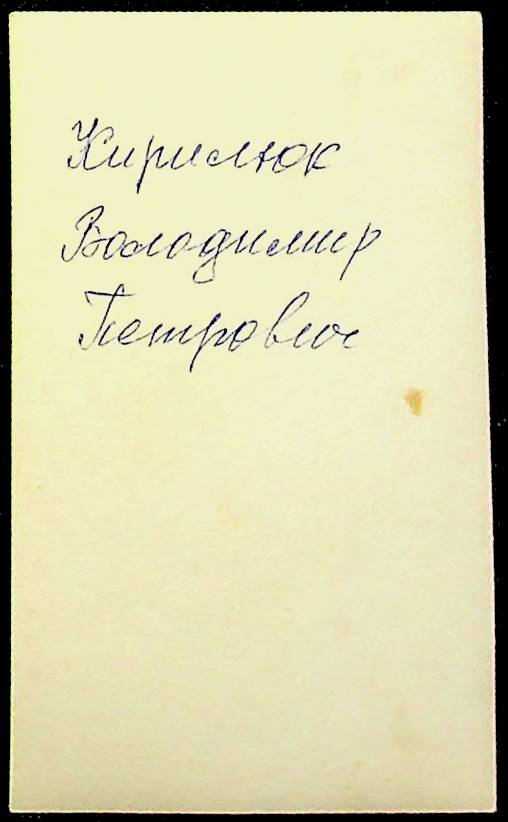 Кирилюк
Володимир
Петрович